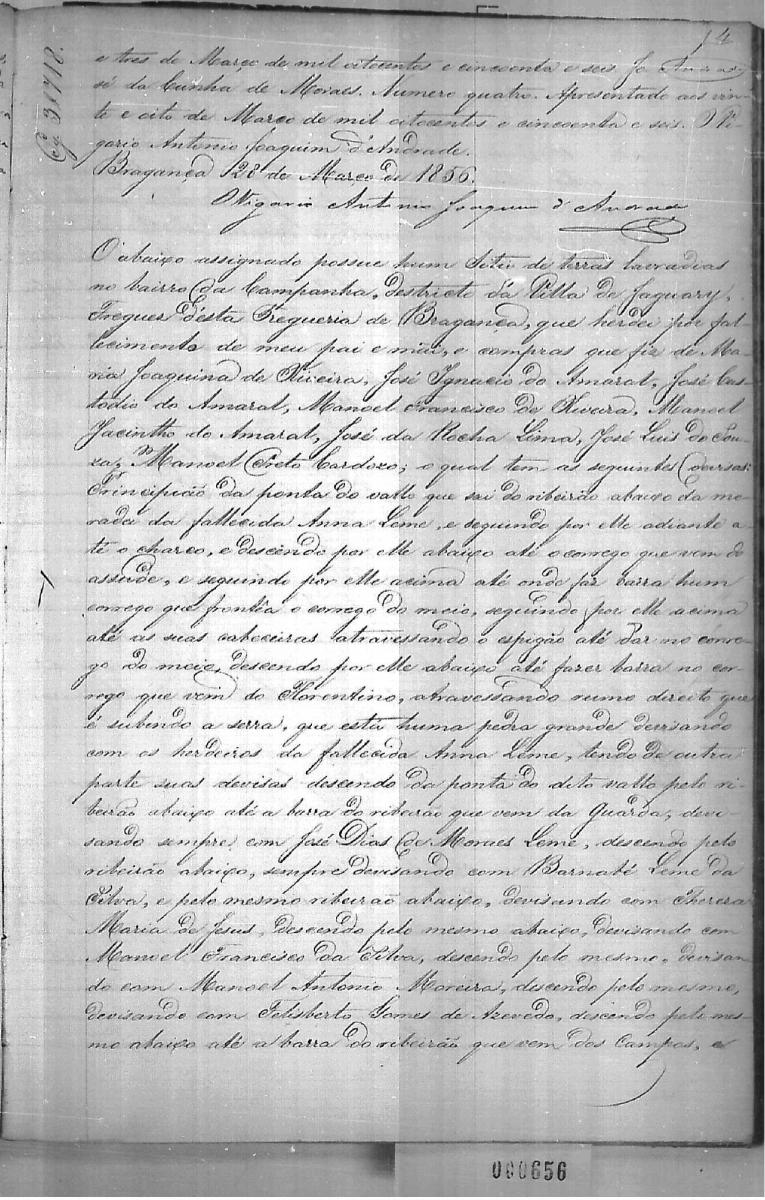 4
Cg 31718.
e tres de Março de mil oitocentos e cincoenta e seis. Jo
sé da Cunha de Moraes. Numero quatro. Apresentado aos vin-
te e oito de Março de mil oitocentos e cincoenta e seis. O Vi-
gario Antonio Joaquim d'Andrade.
Bragança 28 de Março de 1856.
O Vigario Antonio Joaquim d'Andrade
O abaixo assignado possue hum Sitio de terras lavradias
no bairro da Campanha, destricto da Villa de Jaguary,
Freguez d'ésta Fregueria de Bragança, que herdei por fal-
lecimento de meu pai e mãi, e compras que fiz de Ma-
ria Joaquina de Oliveira, José Ignacio do Amaral, José Cus-
todio do Amaral, Manoel Francisco de Oliveira, Manoel
Jacintho do Amaral, José da Rocha Lima, José Luis de Sou-
za, Manoel Cardozo; o qual tem as seguintes devisas:
Principião da ponta do vallo que sai do ribeirão abaixo da mo-
rada da fallecida Anna Leme, e seguindo por elle adiante a-
té o charco, e descendo por elle abaixo até o corrego que vem do
assude, e seguindo por elle acima até onde faz barra hum
corrego que frontêa o corrego do meio, seguindo por elle acima
até as suas cabeceiras atravessando o espigão até dar no corre-
go do meio, descendo por elle abaixo até fazer barra no cor-
rego que vem do Florentino, atravessando rumo direito que
é subindo a serra, que está huma pedra grande devisando
com os herdeiros da fallecida Anna Leme, tendo de outra
parte suas devisas descendo da ponta do dito vallo pelo ri-
beirão abaixo até a barra do ribeirão que vem da Guarda, devi-
sando sempre com José Dias de Moraes Leme, descendo pelo
ribeirão abaixo, sempre devisando com Barnabé Leme da
Silva, e pelo mesmo ribeirão abaixo, devisando com Thereza
Maria de Jesus, descendo pelo mesmo abaixo, devisando com
Manoel Francisco da Silva, descendo pelo mesmo, devisan-
do com Manoel Antonio Moreira, descendo pelo mesmo,
devisando com Felisberto Gomes de Azevedo, descendo pelo mes-
mo abaixo até a barra do ribeirão que vem dos Campos, e
000656